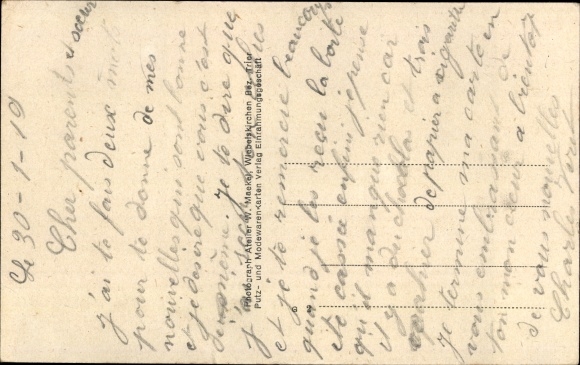 Le 30-1-19
Cher parents et soeur
J'ai te fais deux mots
pour te donne de mes
nouvelles qui sont bonne
et je désire que vous c'est
de même. Je te dire que
J'ai
et je te remercie beaucoup
quand je les reçu la boite
été cassée enfin je pense
qu'il manque rien car
il y a du chocolat trois
de papier a cigarette
Je termine ma carte en
vous embrassant de
ton mon coeur a bientot
de vous nouvelles
Charles
Photograph Atelier W. Maeker, Wiebelskirchen Bez. Trier
Putz- und Modewarenkarten Verlag Einrahmungsgeschäft